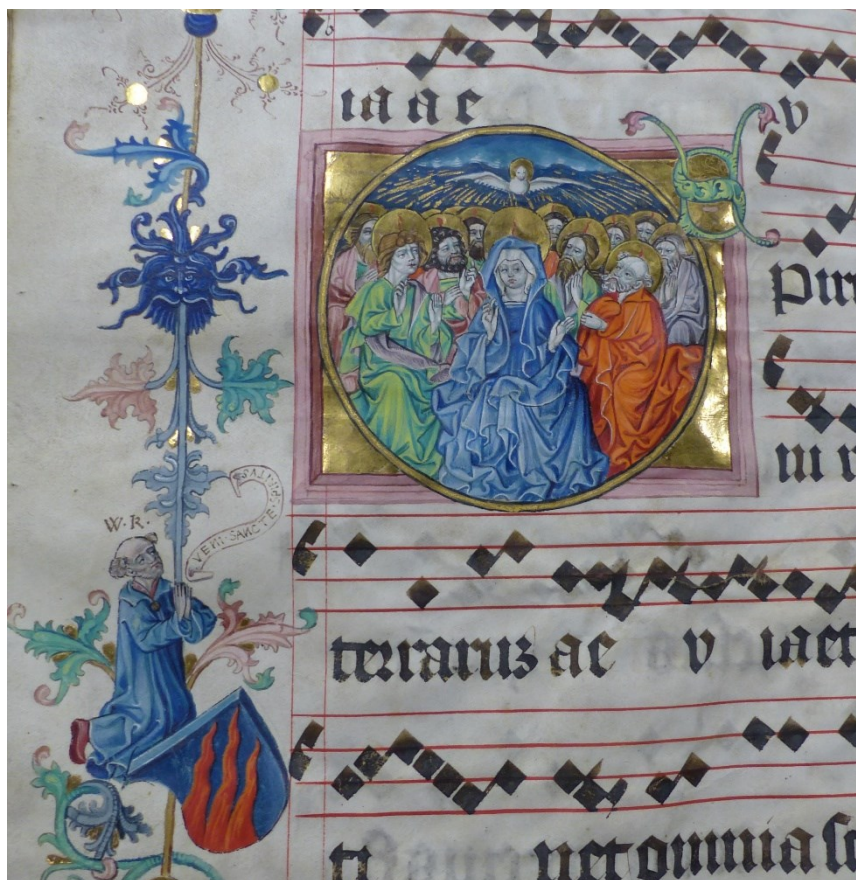 ia a e v
Spiri
W. R.
VENI·SANCTE·SPIRITVS
m r
terrarus ae v ia et
ti net omnia sc